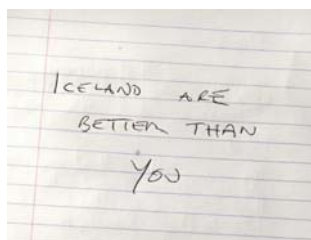 ICELAND ARE
BETTER THAN
YOU